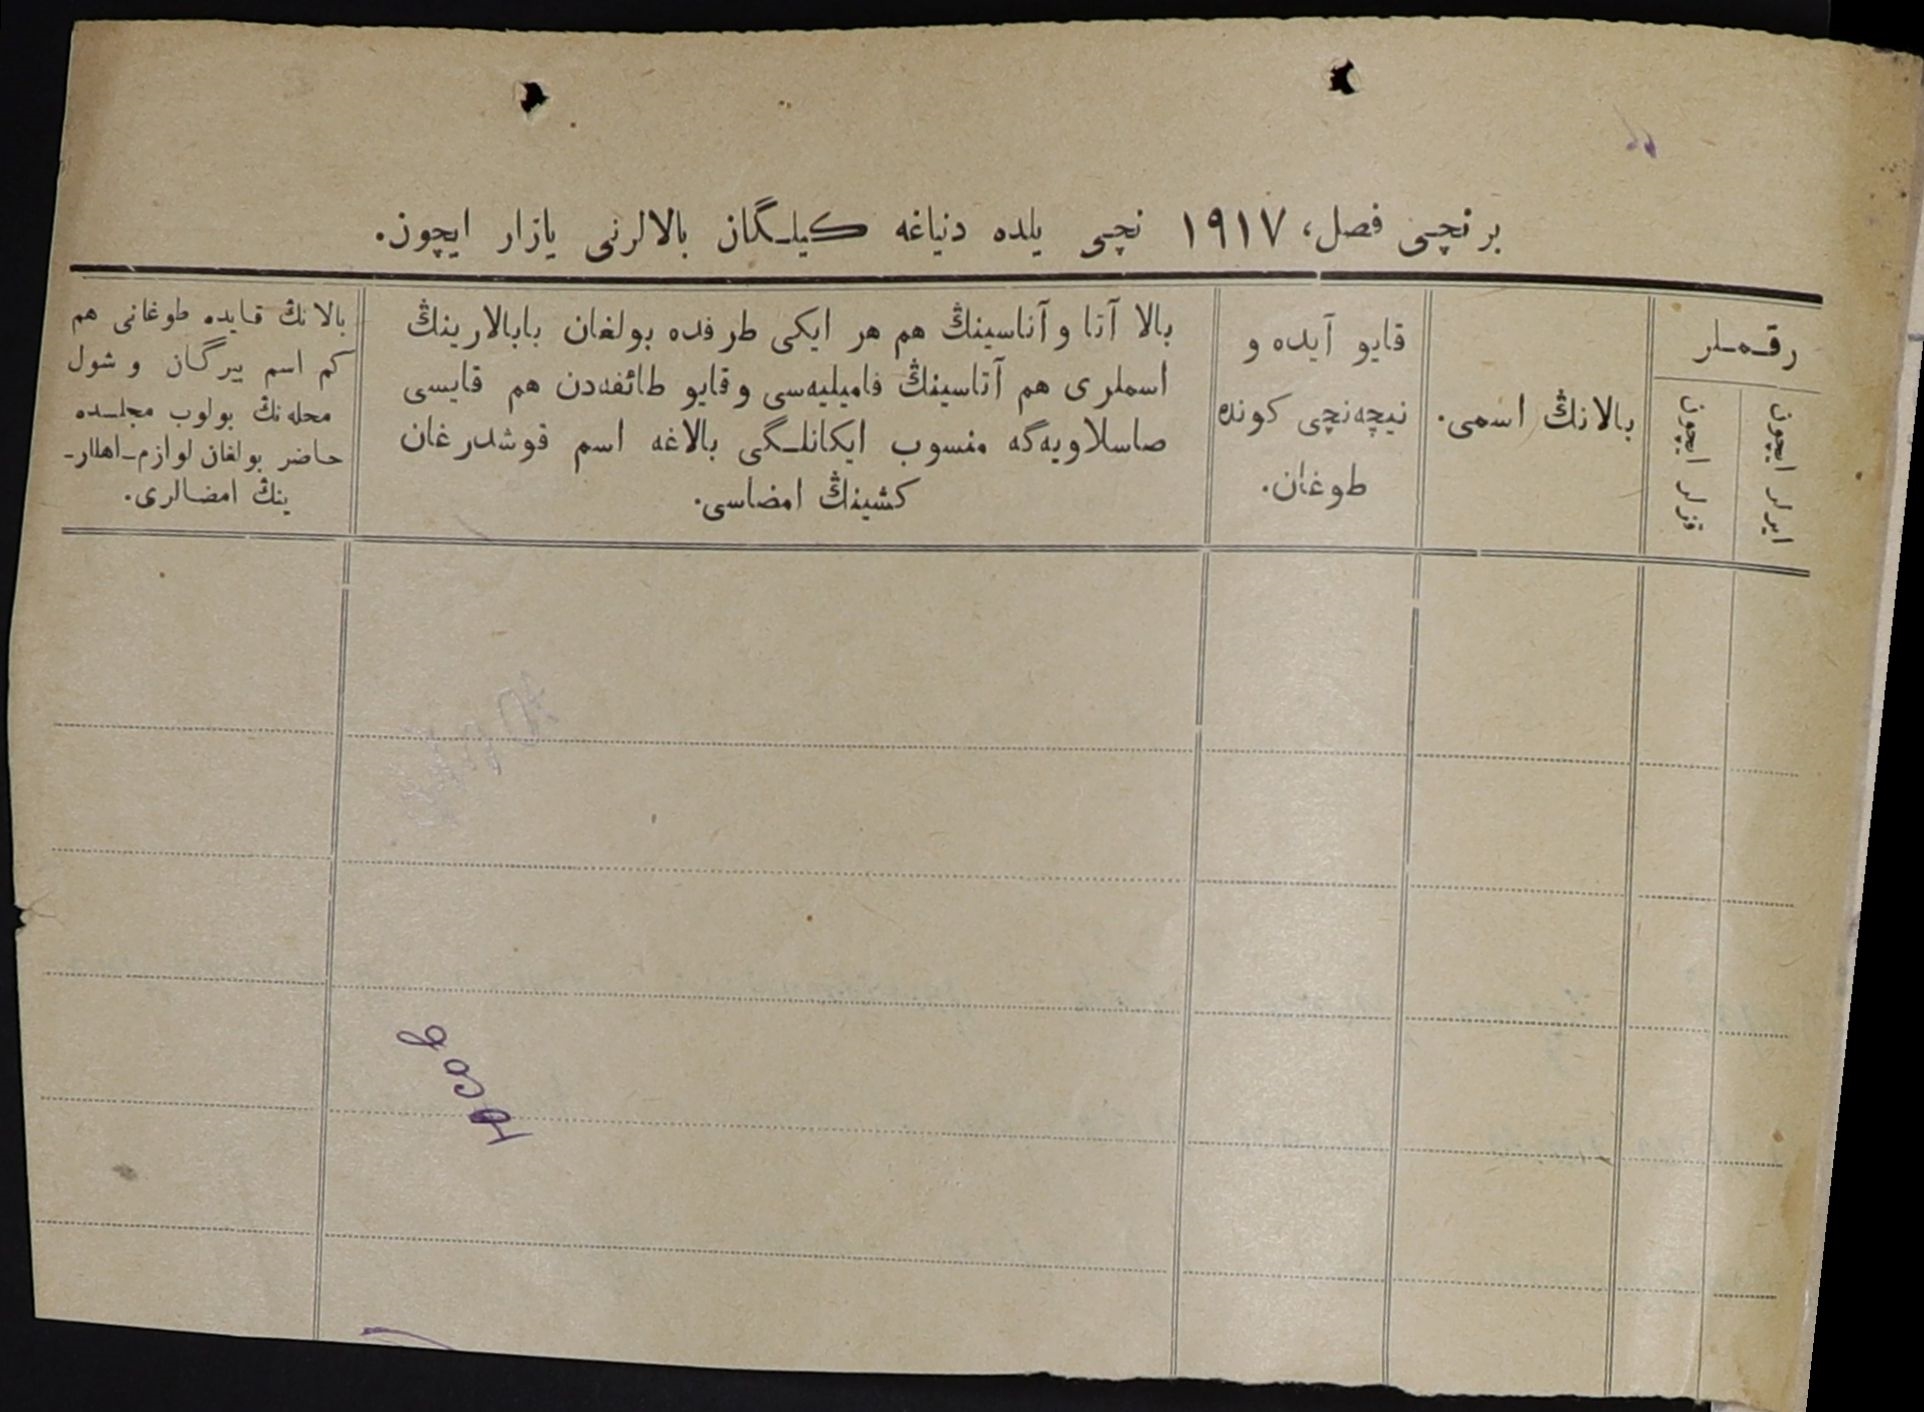 برنچی فصل، ١٩١٧ نچی یلده دنیاغه کیلگان بالالرنی یازار ایچون.
رقملر
ایرلر ایچون
قزلر ایچون
بالانڭ اسمی.
قایو آیده و
نیچەنچی کونده
طوغان.
بالا آتا و آناسینڭ هم هر ایکی طرفده بولغان بابالارینڭ
اسملری هم آتاسینڭ فامیلیەسی و قایو طائفەدن هم قایسی
صاسلاویەگە منسوب ایکانلگی بالاغه اسم قوشدرغان
کشینڭ امضاسی.
بالانڭ قایده طوغانی هم
کم اسم بیرگان و شول
محلەنڭ بولوب مجلسده
حاضر بولغان لوازم اهللر-
ینڭ امضالری.
Юсов